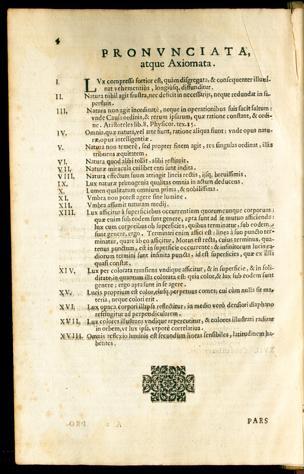 4
PRONVNCIATA,
atque Axiomata.
I. LVx compressa fortior est, quàm disgregata, & consequenter illumi-
nat vehementiùs, longiùsq; diffunditur.
II. Natura nihil agit frustra, nec deficit in necessarijs, neque redundat in su-
perfluis.
III. Natura non agit inordinatè, neque in operationibus suis facit saltum:
vnde Causa ordinis, & rerum ipsarum, quæ ratione constant, & ordi-
ne. Aristoteles lib. 8. Physicor. tex. 15.
IV. Omnia, quæ natura, vel arte fiunt, ratione aliqua fiunt: vnde opus natu-
ræ, opus intelligentiæ.
V. Natura non temerè, sed propter finem agit, res singulas ordinat, illis
tribuens æquitatem.
VI. Natura quod alibi tollit, alibi restituit.
VII. Naturæ miracula cuilibet enti sunt indita.
VIII. Natura effectum suum attingit lineis rectis, ijsq; breuissimis.
IX. Lux naturæ primogenia qualitas omnia in actum deducens.
X. Lumen qualitatum omnium prima, & nobilissima.
XI. Vmbra non potest agere sine lumine.
XII. Vmbra assumit naturam medij.
XIII. Lux afficitur à superficiebus occurrentium quorumcunque corporum:
quæ enim sub eodem sunt genere, apta sunt ad se mutuo afficienda:
lux cum corporibus ob superficies, quibus terminatur, sub eodem
sunt genere, ergo. Terminari enim affici est: linea à suo puncto ter-
minatur, quare ab eo afficitur. Motus est recta, cuius terminus, qua-
tenus punctum, est in superficie occurrente: & infinitorum lucis ra-
diorum termini sunt infinita puncta, id est superficies, quæ ex illis
quasi constat.
XIV. Lux per colorata transiens vndique afficitur, & in superficie, & in soli-
ditate, in quantum illa colorata est: quia color, & lux sub eodem sunt
genere; ergo apta sunt in se agere.
XV. Lucis proprium est color, eiusq; perpetuus comes; cui cùm nulla sit ma-
teria, neque colori erit.
XVI. Lux opaca corpori illapsa reflectitur; in medio verò densiori diaphano
refringitur ad perpendicularem.
XVII. Lux colores illustrans vndique repercutitur, & colores illustrati radiant
in orbem, vt lux ipsa, vtpotè correlatiua.
XVIII. Omnis reflexio luminis est secundùm lineas sensibiles, latitudinem ha-
bentes.
PARS